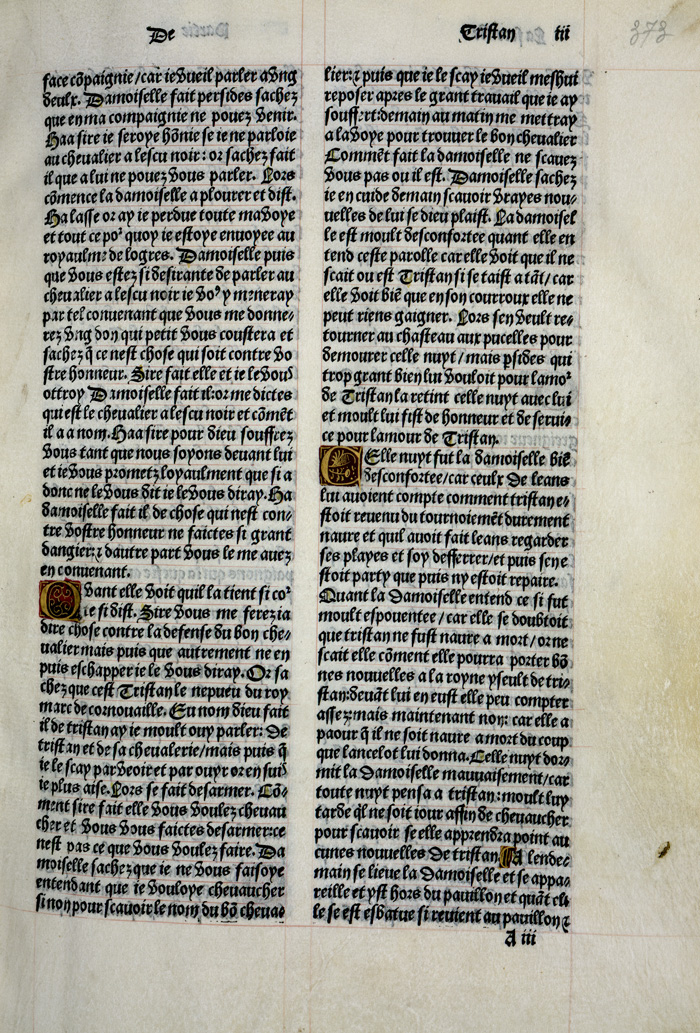 De
Tristan iii
373
face cõpaignie/car ie vueil parler a vng
deulx. Damoiselle fait persides sachez
que en ma compaignie ne pouez venir.
Haa sire ie seroye hõnie se ie ne parloie
au cheualier a lescu noir: or sachez fait
il que a lui ne pouez vous parler. Lors
cõmence la damoiselle a plourer et dist.
Ha lasse or ay ie perdue toute ma voye
et tout ce poꝰ quoy ie estoye enuoyee au
royaulme de logres. Damoiselle puis
que vous estez si desirante de parler au
cheualier a lescu noir ie voꝰ y meneray
par tel conuenant que vous me donne-
rez vng don qui petit vous coustera et
sachez q̃ ce nest chose qui soit contre vo
stre honneur. Sire fait elle et ie le voꝰ
ottroy Damoiselle fait il: or me dictes
qui est le cheualier a lescu noir et cõmēt
il a a nom. Haa sire pour dieu souffrez
vous tant que nous soyons deuant lui
et ie vous prometz loyaulment que si a
donc ne le vous dit ie le vous diray. Ha
damoiselle fait il de chose qui nest con-
tre vostre honneur ne faictes si grant
dangier: ⁊ dautre part vous le me auez
en conuenant.
Quant elle voit quil la tient si coꝰ
te si dist. Sire vous me ferez ia
dire chose contre la defense du bon che-
ualier mais puis que autrement ne en
puis eschapper ie le vous diray. Or sa
chez que cest Tristan le nepueu du roy
marc de cornouaille. En nom dieu fait
il de tristan ay ie moult ouy parler: De
tristan et de sa cheualerie/mais puis q̃
ie le scay par veoir et par ouyr or en suiꝰ
ie plus aise. Lors se fait desarmer. Cõ-
ment sire fait elle vous voulez cheuau
cher et vous vous faictes desarmer: ce
nest pas ce que vous voulez faire. Da
moiselle sachez que ie ne vous faisoye
entendant que ie vouloye cheuaucher
si non pour scauoir le nom du bõ cheua-
lier: ⁊ puis que ie le scay ie vueil meshui
reposer apres le grant trauail que ie ay
souffert: demain au matin me mettray
a la voye pour trouuer le bon cheualier
Commēt fait la damoiselle ne scauez
vous pas ou il est. Damoiselle sachez
ie en cuide demain scauoir vrayes nou-
uelles de lui se dieu plaist. La damoisel
le est moult desconfortee quant elle en
tend ceste parolle car elle voit que il ne
scait ou est Tristan si se taist a tāt/ car
elle voit biē que en son courroux elle ne
peut riens gaigner. Lors sen veult re-
tourner au chasteau aux pucelles pour
demourer celle nuyt/mais p̃sides qui
trop grant bien lui vouloit pour lamoꝰ
de Tristan la retint celle nuyt auec lui
et moult lui fist de honneur et de serui-
ce pour lamour de Tristan.
Celle nuyt fut la damoiselle biē
desconfortee/car ceulx de leans
lui auoient compte comment tristan e-
stoit reuenu du tournoiemēt durement
naure et quil auoit fait leans regarder
ses playes et soy defferrer/et puis sen e
stoit party que puis ny estoit repaire.
Quant la Damoiselle entend ce si fut
moult espouentee/car elle se doubtoit
que tristan ne fust naure a mort/or ne
scait elle cõment elle pourra porter bõ
nes nouuelles a la royne yseult de tri-
stan: deuāt lui en eust elle peu compter
assez: mais maintenant non: car elle a
paour q̃ il ne soit naure a mort du coup
que lancelot lui donna. Celle nuyt dor-
mit la Damoiselle mauuaisement/car
toute nuyt pensa a tristan: moult luy
tarde q̃l ne soit iour affin de cheuaucher
pour scauoir se elle apprendra point au
cunes nouuelles de tristan. A lende-
main se lieue la Damoiselle et se appa-
reille et yst hors du pauillon et quāt el-
le se est esbatue si reuient au pauillon ⁊
A iii